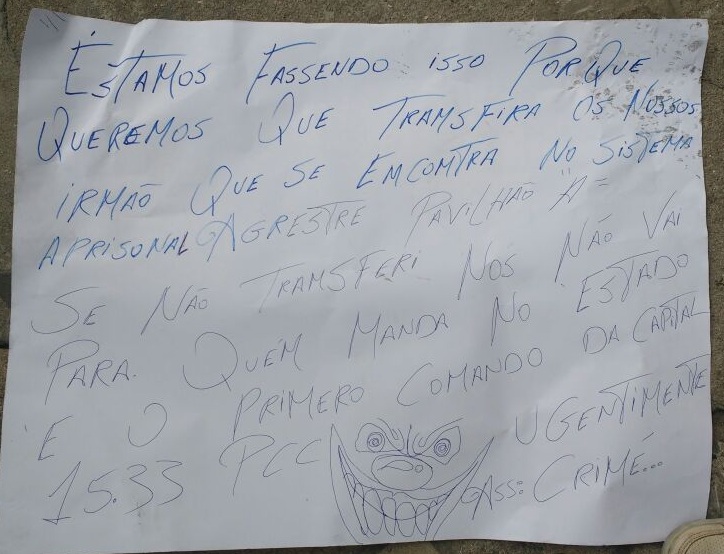 ÉSTAMOS FASSENDO ISSO PORQUE
QUEREMOS QUE TRAMSFIRA OS NOSSOS
IRMÃO QUE SE EMCOMTRA NO SISTEMA
APRISONAL AGRESTRE PAVILHÃO "A"
SE NÃO TRAMSFERI NOS NÃO VAI
PARA. QUEM MANDA NO ESTADO
E O PRIMERO COMANDO DA CAPITAL
15.33 PCC UGENTIMENTE
ASS: CRIMÉ...